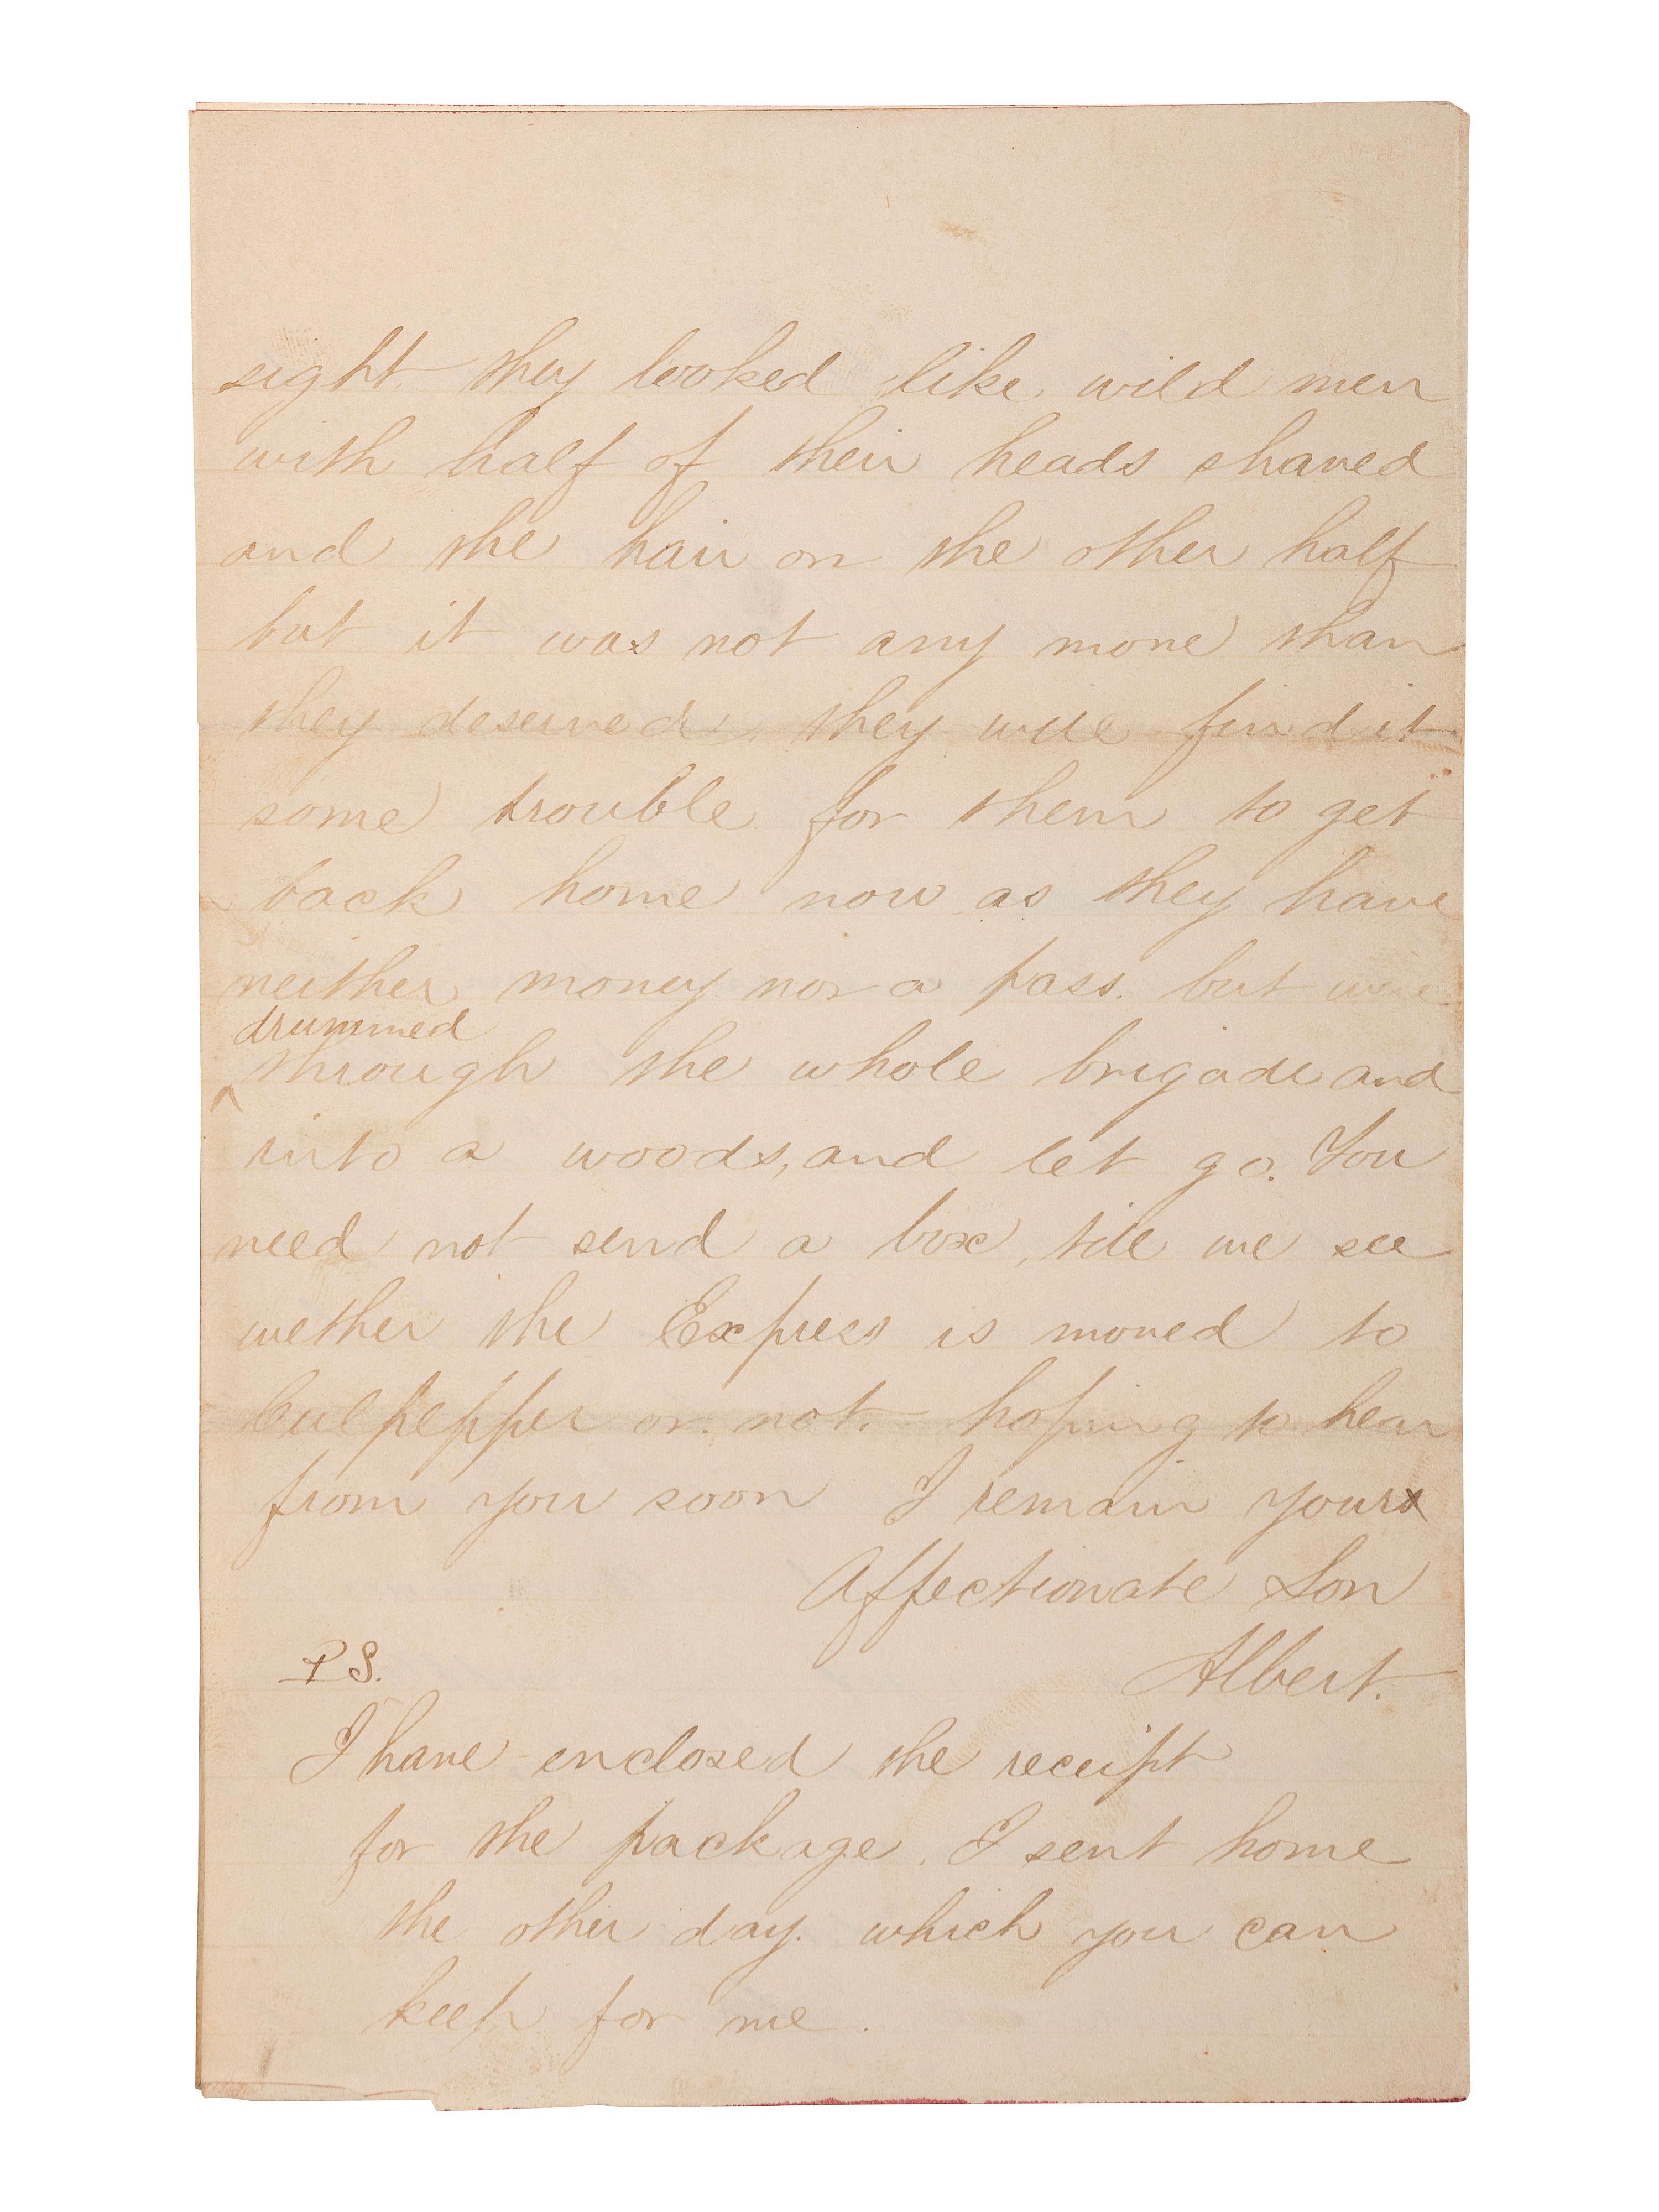 sight they looked like wild men
with half of their heads shaved
and the hair on the other half
but it was not any more than
they deserved, they will find it
some trouble for them to get
back home now as they have
neither money nor a pass. but were
drummed
through the whole brigade and
into a woods, and let go. You
need not send a box, till we see
wether the Express is moved to
Culpepper or not. hoping to hear
from you soon I remain your
Affectionate Son
Albert.
P S.
I have enclosed the receipt
for the package. I sent home
the other day. which you can
keep for me.